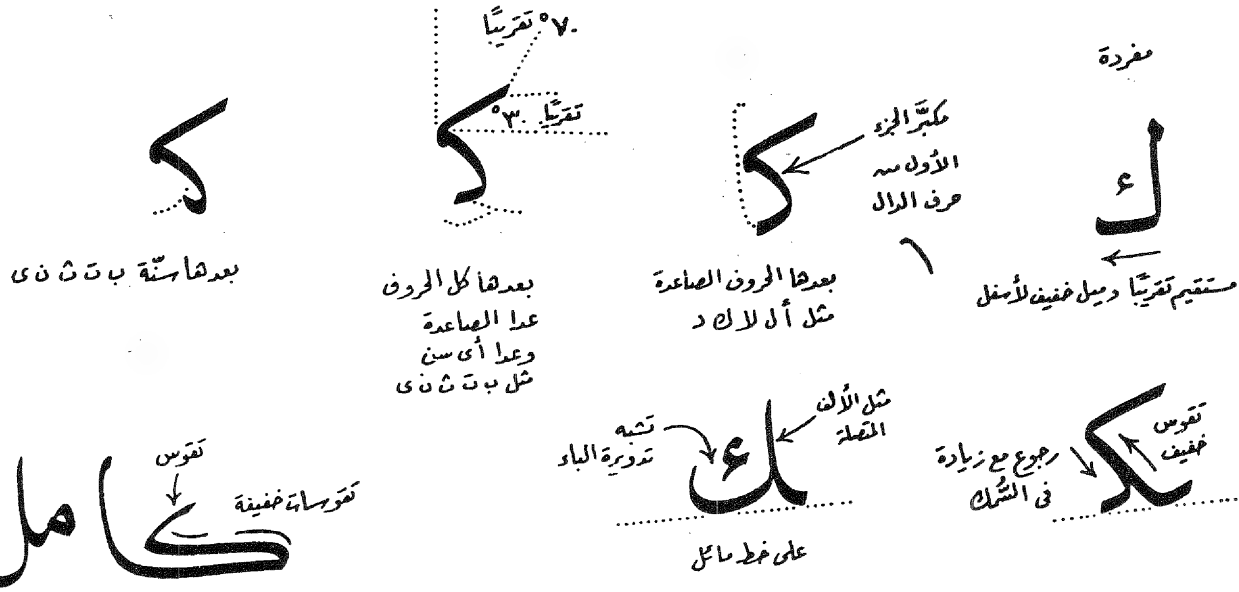 مفردة
ك
مستقيم تقريبًا وميل خفيف لأسفل
مكبَّر الجزء
الأول من
حرف الدال
كـ
بعدها الحروف الصاعدة
مثل أ ل لا ك د
٧٠° تقريبًا
٣٠° تقريبًا
كـ
بعدها كل الحروف
عدا الصاعدة
وعدا أى سن
مثل ب ت ث ن ى
كـ
بعدها سنّة ب ت ث ن ى
تقوس
خفيف
رجوع مع زيادة
فى السُّمك
ـكـ
مثل الألف
المتصلة
تشبه
تدويرة الباء
ـك
على خط مائل
تقوس
تقوسات خفيفة
كامل